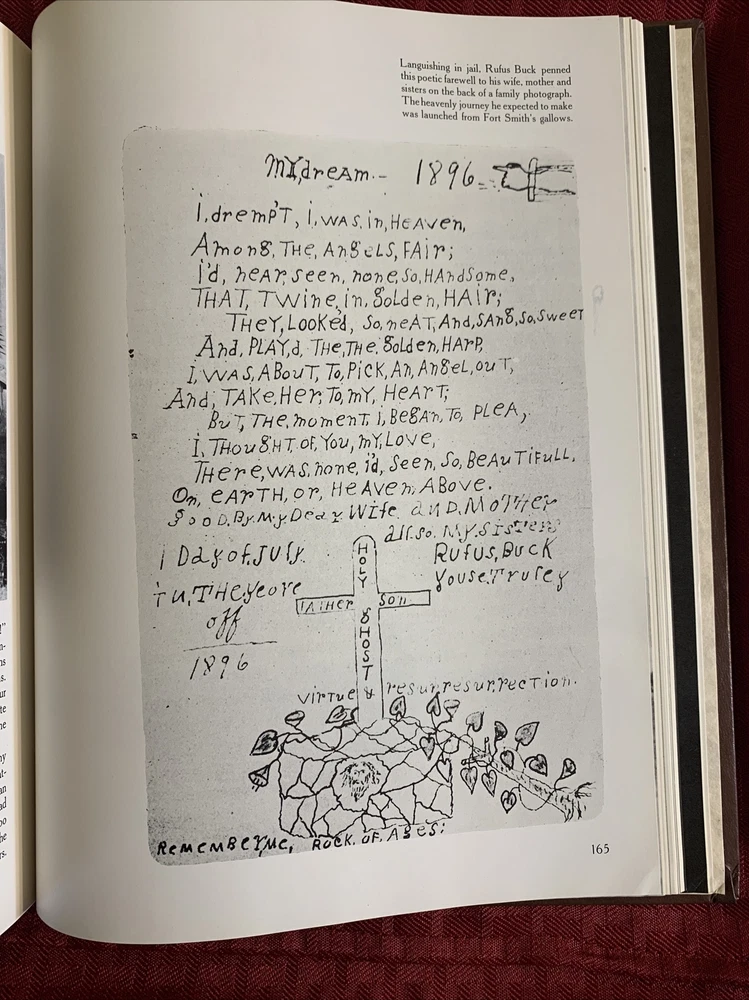 Languishing in jail, Rufus Buck penned
this poetic farewell to his wife, mother and
sisters on the back of a family photograph.
The heavenly journey he expected to make
was launched from Fort Smith's gallows.
MY,dreAm.- 1896
i,drempT, i,wAS,in,HeAven,
Among, THe, AngeLS, FAir;
i'd, neAr, seen, none,So,HAndSome,
THAT, TWine,in,golden,HAir;
THeY,Looked, So,neAT,And,SAng,So,Sweet
And,PLAY,d, THe,THe,golden,HArp,
i,WAS,ABouT,To,Pick,An,AngeL,ouT,
And, TAke,Her,To,mY, HeArT;
BuT,THe,moment,i,BegAn,To, PLeA,
i,THougHT,oF,You,mY,Love,
THere,WAS,none,i'd,Seen,So,BeAuTiFuLL,
On, eARTH,or,HeAven,ABove.
gooD.By.My.Dear.Wife anD.MoTHer
all.so.My.Sisters
1 Day of,JuLy.
Rufus,Buck
YouseTruley
iu,THeYeore
off
1896
HOLY
FATHer Son
gHOST
virtue & resurresurrection.
RememBerMe, Rock,oF,Ages:
165